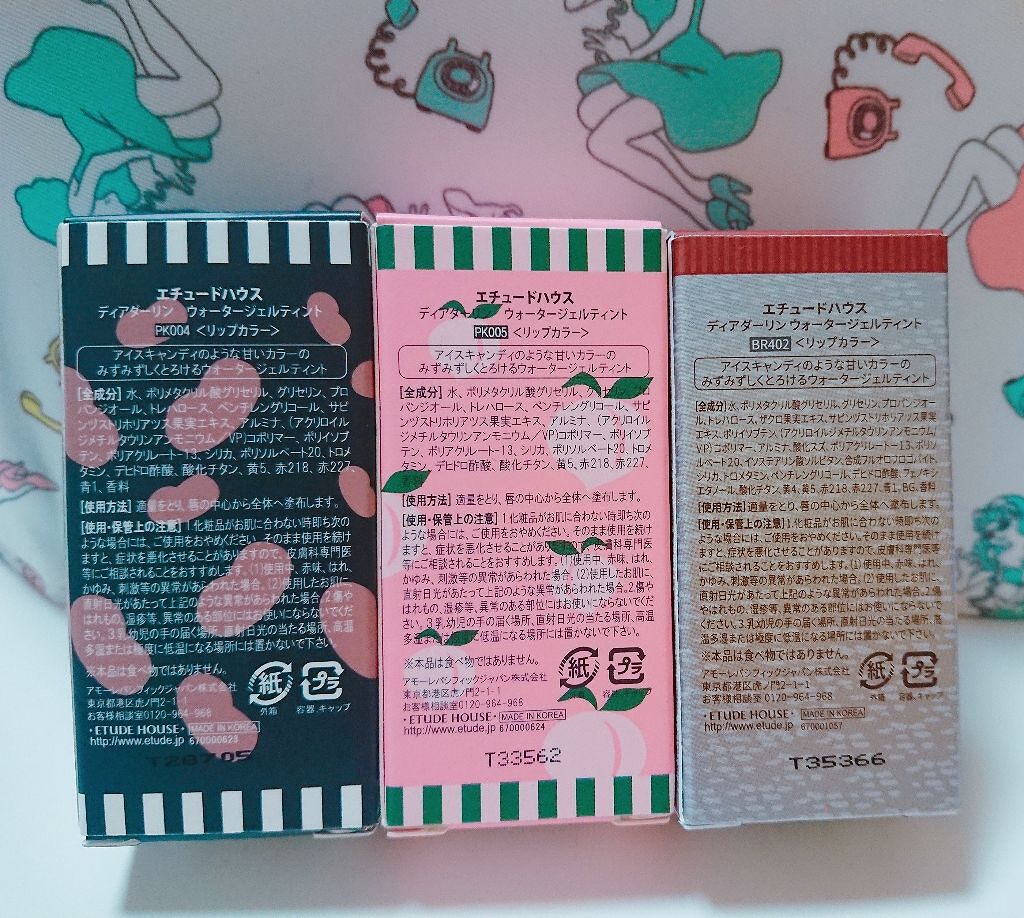 エチュードハウス
ディアダーリン ウォータージェルティント
PK004 <リップカラー>
アイスキャンディのような甘いカラーの
みずみずしくとろけるウォータージェルティント
[全成分] 水、ポリメタクリル酸グリセリル、グリセリン、プロ
パンジオール、トレハロース、ペンチレングリコール、サピ
ンヅストリホリアツス果実エキス、アルミナ、(アクリロイル
ジメチルタウリンアンモニウム/VP)コポリマー、ポリイソブ
テン、ポリアクリレート-13、シリカ、ポリソルベート20、トロメ
タミン、デヒドロ酢酸、酸化チタン、黄5、赤218、赤227、
青1、香料
[使用方法] 適量をとり、唇の中心から全体へ塗布します。
[使用・保管上の注意] 1.化粧品がお肌に合わない時即ち次の
ような場合には、ご使用をおやめください。そのまま使用を続け
ますと、症状を悪化させることがありますので、皮膚科専門医
等にご相談されることをおすすめします。(1)使用中、赤味、はれ、
かゆみ、刺激等の異常があらわれた場合。(2)使用したお肌に、
直射日光があたって上記のような異常があらわれた場合。2.傷や
はれもの、湿疹等、異常のある部位にはお使いにならないでくだ
さい。3.乳幼児の手の届く場所、直射日光の当たる場所、高温
多湿または極度に低温になる場所には置かないで下さい。
※本品は食べ物ではありません。
アモーレパシフィックジャパン株式会社
東京都港区虎ノ門2-1-1
お客様相談室0120-964-968
・ETUDE HOUSE・ MADE IN KOREA
http://www.etude.jp 670000623
紙 プラ
外箱 容器、キャップ
エチュードハウス
ディアダーリン ウォータージェルティント
PK005 <リップカラー>
アイスキャンディのような甘いカラーの
みずみずしくとろけるウォータージェルティント
[全成分] 水、ポリメタクリル酸グリセリル、グリセリン、プロ
パンジオール、トレハロース、ペンチレングリコール、サピ
ンヅストリホリアツス果実エキス、アルミナ、(アクリロイル
ジメチルタウリンアンモニウム/VP)コポリマー、ポリイソブ
テン、ポリアクリレート-13、シリカ、ポリソルベート20、トロメ
タミン、デヒドロ酢酸、酸化チタン、黄5、赤218、赤227、
香料
[使用方法] 適量をとり、唇の中心から全体へ塗布します。
[使用・保管上の注意] 1.化粧品がお肌に合わない時即ち次の
ような場合には、ご使用をおやめください。そのまま使用を続け
ますと、症状を悪化させることがありますので、皮膚科専門医
等にご相談されることをおすすめします。(1)使用中、赤味、はれ、
かゆみ、刺激等の異常があらわれた場合。(2)使用したお肌に、
直射日光があたって上記のような異常があらわれた場合。2.傷や
はれもの、湿疹等、異常のある部位にはお使いにならないでくだ
さい。3.乳幼児の手の届く場所、直射日光の当たる場所、高温
多湿または極度に低温になる場所には置かないで下さい。
※本品は食べ物ではありません。
アモーレパシフィックジャパン株式会社
東京都港区虎ノ門2-1-1
お客様相談室0120-964-968
・ETUDE HOUSE・ MADE IN KOREA
http://www.etude.jp 670000624
紙 プラ
外箱
T33562
エチュードハウス
ディアダーリン ウォータージェルティント
BR402 <リップカラー>
アイスキャンディのような甘いカラーの
みずみずしくとろけるウォータージェルティント
[全成分]水、ポリメタクリル酸グリセリル、グリセリン、プロパンジオー
ル、トレハロース、ザクロ果実エキス、サピンヅストリホリアツス果実
エキス、ポリイソブテン、(アクリロイルジメチルタウリンアンモニウム/
VP)コポリマー、アルミナ、酸化スズ、ポリアクリレート-13、ポリ
ソルベート20、イソステアリン酸ソルビタン、合成フルオロフロゴパイト、
シリカ、トロメタミン、デヒドロ酢酸、ペンチレングリコール、フェノキシ
エタノール、酸化チタン、黄4、黄5、赤218、赤227、青1、BG、香料
[使用方法]適量をとり、唇の中心から全体へ塗布します。
[使用・保管上の注意] 1.化粧品がお肌に合わない時即ち次の
ような場合には、ご使用をおやめください。そのまま使用を続け
ますと、症状を悪化させることがありますので、皮膚科専門医等
にご相談されることをおすすめします。(1)使用中、赤味、はれ、
かゆみ、刺激等の異常があらわれた場合。(2)使用したお肌に、
直射日光があたって上記のような異常があらわれた場合。2.傷
やはれもの、湿疹等、異常のある部位にはお使いにならないでく
ださい。3.乳幼児の手の届く場所、直射日光の当たる場所、高温
多湿または極度に低温になる場所には置かないで下さい。
※本品は食べ物ではありません。
アモーレパシフィックジャパン株式会社
東京都港区虎ノ門2-1-1
お客様相談室0120-964-968
・ETUDE HOUSE・ MADE IN KOREA
http://www.etude.jp 670001057
紙 プラ
外箱 容器、キャップ
T35366